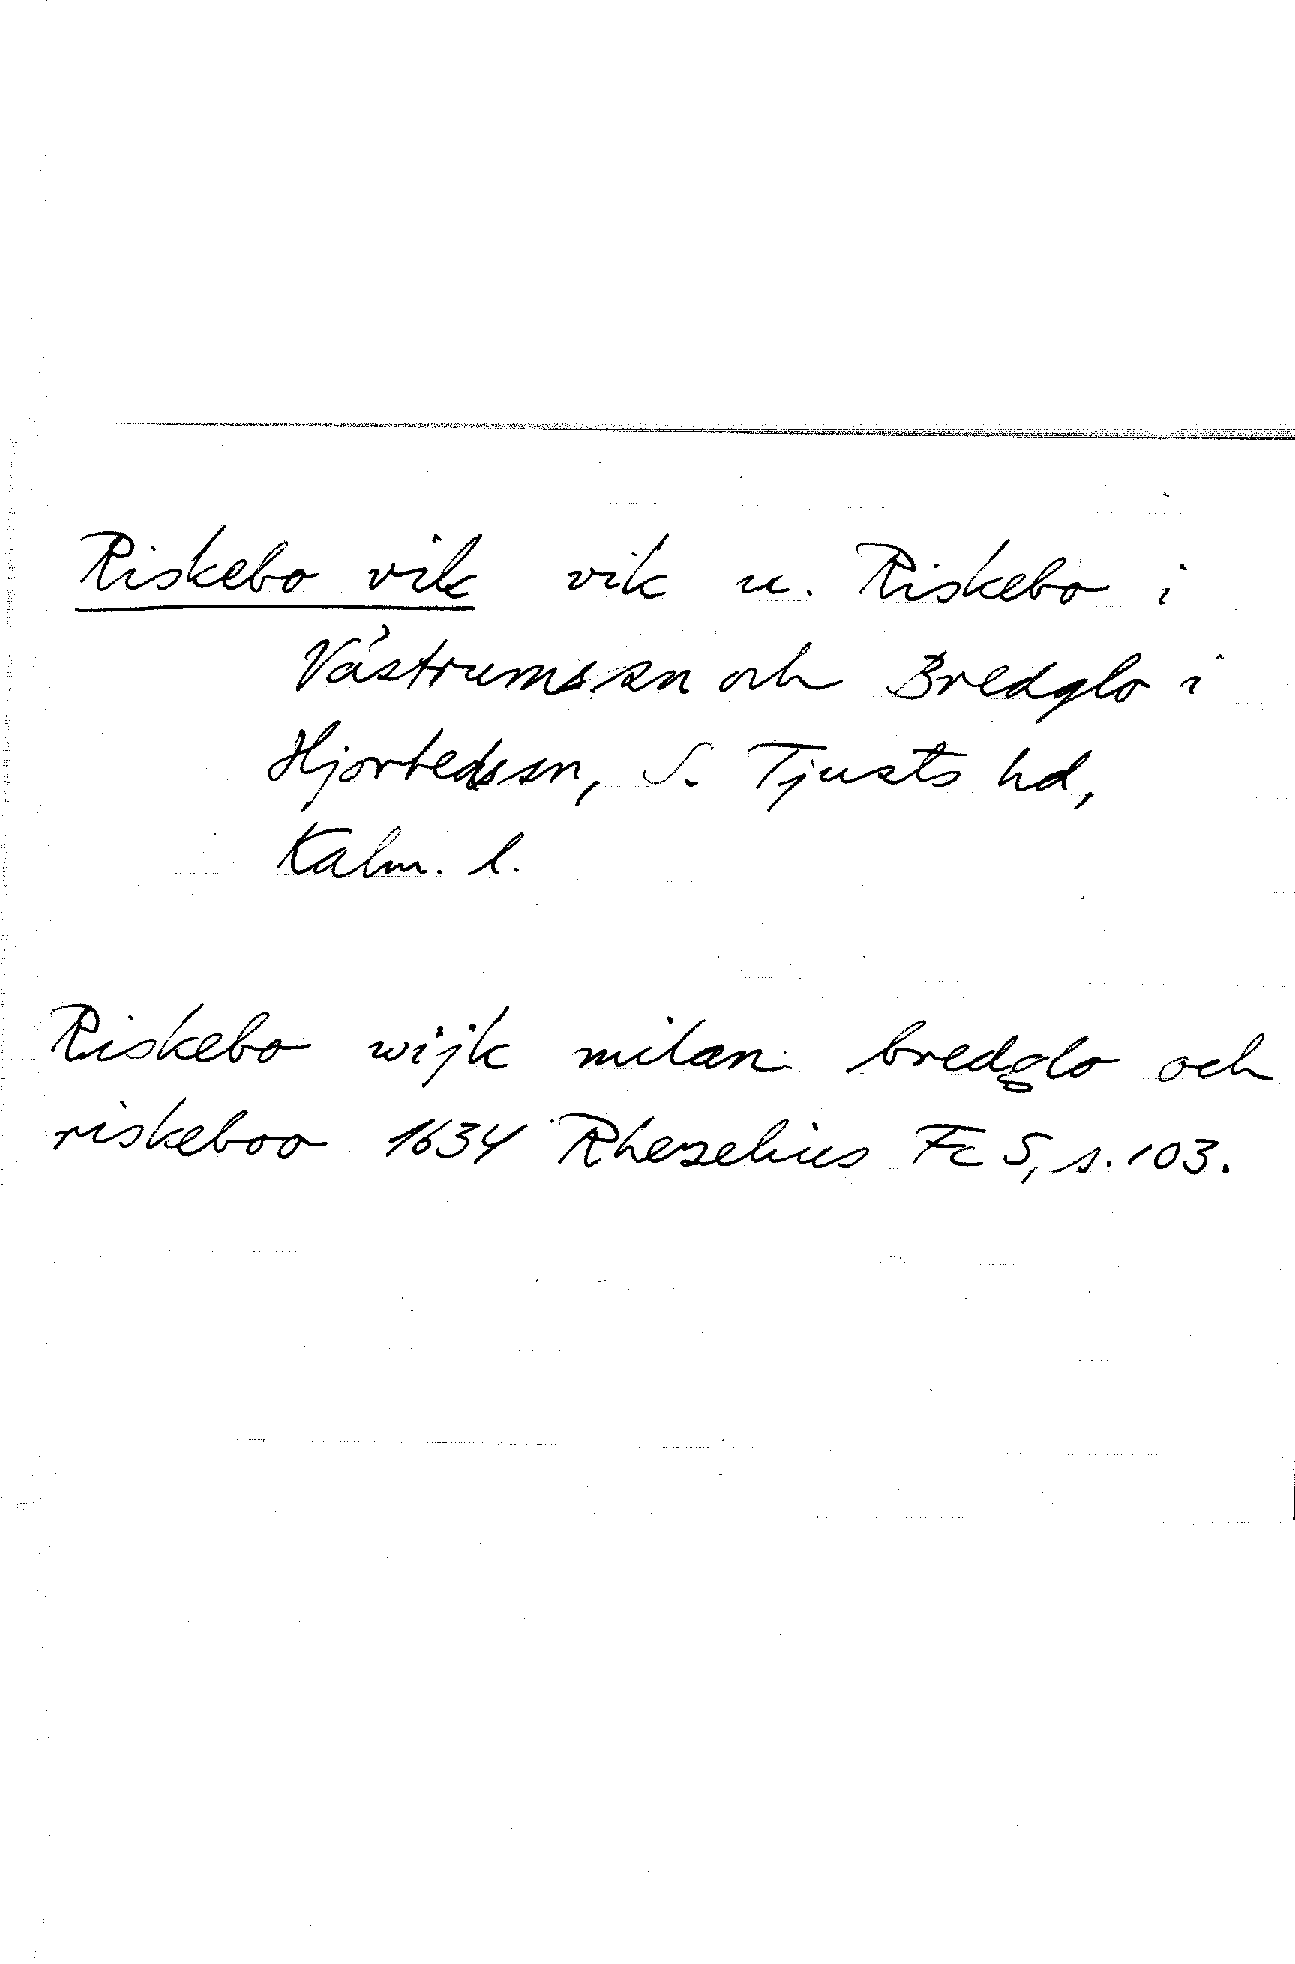 Riskebo vik vik u. Riskebo i
Västrumssn och Bredglo i
Hjortedssn, S. Tjusts hd,
Kalm. l.
Riskebo wijk milan bredglo och
riskeboo 1634 Rhezelius Fc 5, s. 103.